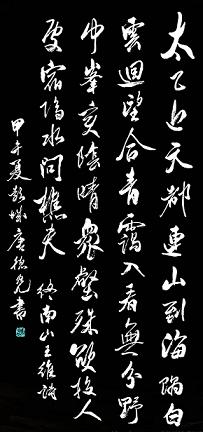 太乙近天都連山到海隅白
雲迴望合青靄入看無分野
中峯變陰晴衆壑殊欲投人
處宿隔水問樵夫 終南山王維詩
甲午夏彭城書